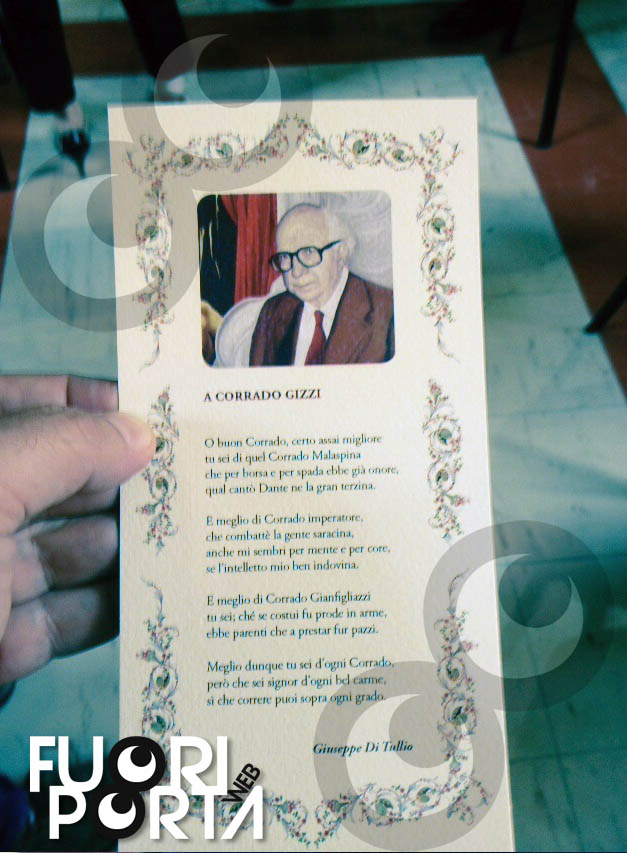 A CORRADO GIZZI
O buon Corrado, certo assai migliore
tu sei di quel Corrado Malaspina
che per borsa e per spada ebbe già onore,
qual cantò Dante ne la gran terzina.
E meglio di Corrado imperatore,
che combattè la gente saracina,
anche mi sembri per mente e per core,
se l'intelletto mio ben indovina.
E meglio di Corrado Gianfigliazzi
tu sei; ché se costui fu prode in arme,
ebbe parenti che a prestar fur pazzi.
Meglio dunque tu sei d'ogni Corrado,
però che sei signor d'ogni bel carme,
sì che correr puoi sopra ogni grado.
Giuseppe Di Tullio
FUORI
PORTA
WEB